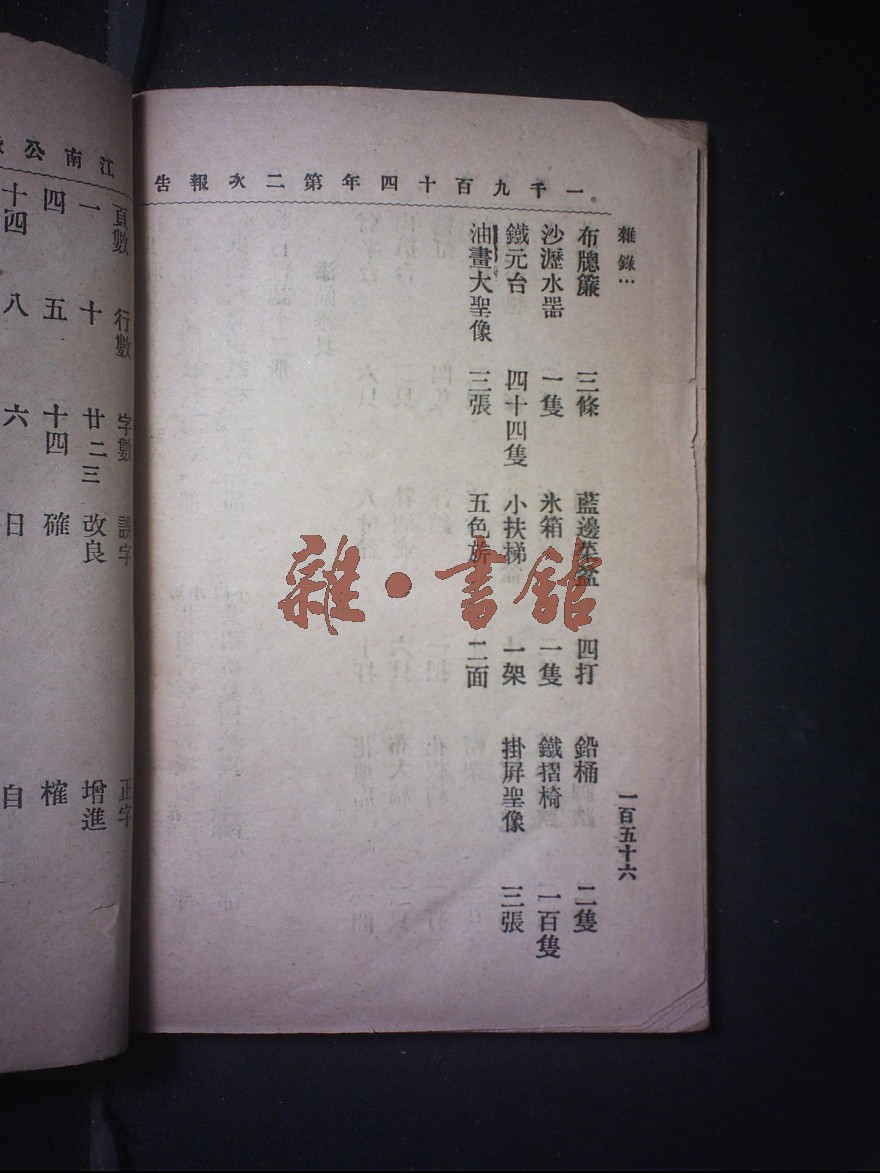 一千九百十四年第二次報告
雜錄…
一百五十六
布牕簾 三條 藍邊菜盆 四打 鉛桶 二隻
沙瀝水器 一隻 氷箱 一隻 鐵摺椅 一百隻
鐵元台 四十四隻 小扶梯 一架 掛屏聖像 三張
油畫大聖像 三張 五色旂 二面
雜·書館
江南公
頁數 行數 字數 誤字 正字
一 十 廿二三 改良 增進
四 五 十四 確 榷
十四 八 六 日 自